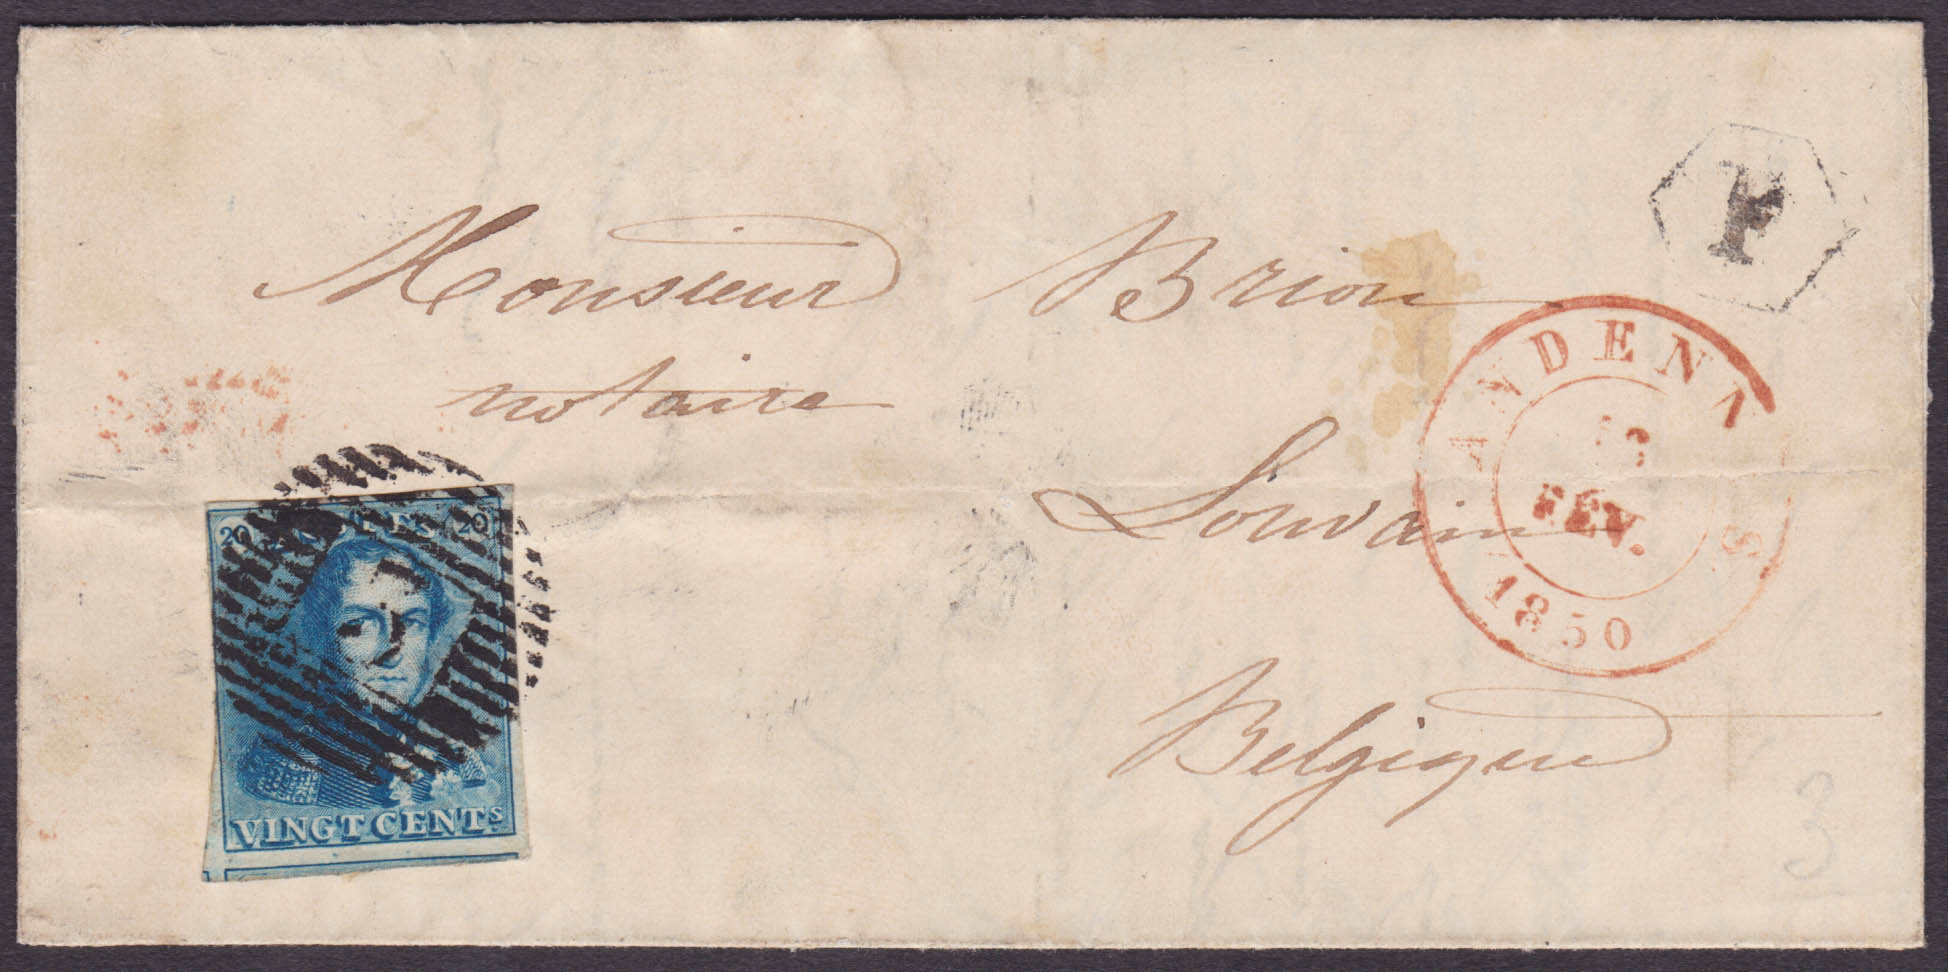 Monsieur Brion
notaire
Louvain
Belgique
ANDENNE
FÉV.
1850
20 POSTES 20
VINGT CENTS
3